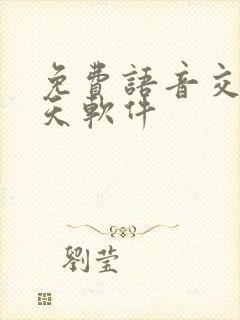 免費語音交
天軟件
劉瑩